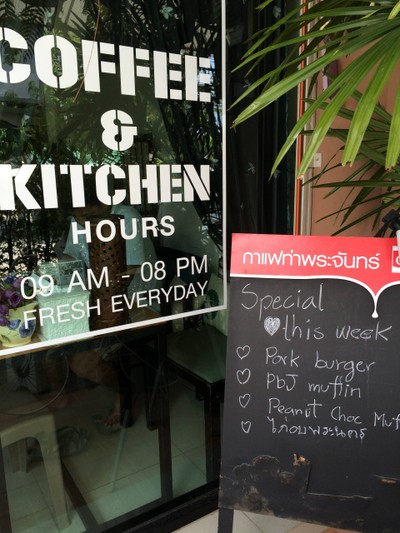 COFFEE
&
KITCHEN
HOURS
09 AM - 08 PM
FRESH EVERYDAY
กาแฟท่าพระจันทร์
Special
this week
Pork burger
PbJ muffin
Peanut Choc Muf